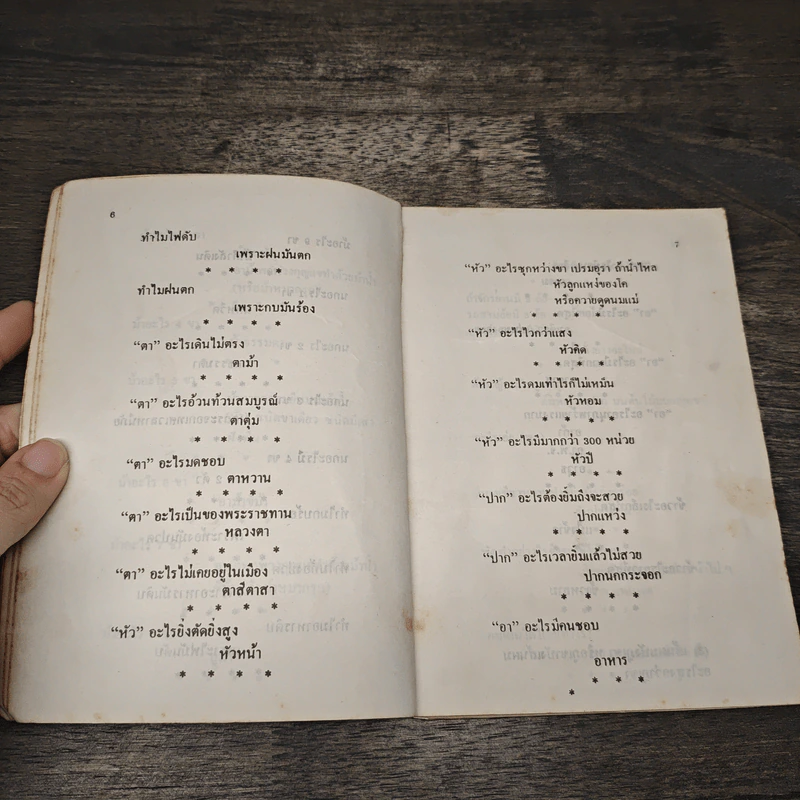 6
ทำไมไฟดับ
เพราะฝนมันตก
* * * *
ทำไมฝนตก
เพราะกบมันร้อง
* * * *
“ตา” อะไรเดินไม่ตรง
ตาม้า
* * * *
“ตา” อะไรอ้วนท้วนสมบูรณ์
ตาตุ่ม
* * * *
“ตา” อะไรมดชอบ
ตาหวาน
* * * *
“ตา” อะไรเป็นของพระราชทาน
หลวงตา
* * * *
“ตา” อะไรไม่เคยอยู่ในเมือง
ตาสีตาสา
* * * *
“หัว” อะไรยิ่งตัดยิ่งสูง
หัวหน้า
* * * *
7
“หัว” อะไรซุกหว่างขา เปรมอุรา ถ้าน้ำไหล
หัวลูกแหง่ของโค
หรือควายดูดนมแม่
* * * *
“หัว” อะไรไวกว่าแสง
หัวคิด
* * * *
“หัว” อะไรดมเท่าไรก็ไม่เหม็น
หัวหอม
* * * *
“หัว” อะไรมีมากกว่า 300 หน่วย
หัวปี
* * * *
“ปาก” อะไรต้องยิ้มถึงจะสวย
ปากแหว่ง
* * * *
“ปาก” อะไรเวลายิ้มแล้วไม่สวย
ปากนกกระจอก
* * * *
“อา” อะไรมีคนชอบ
อาหาร
* * * *